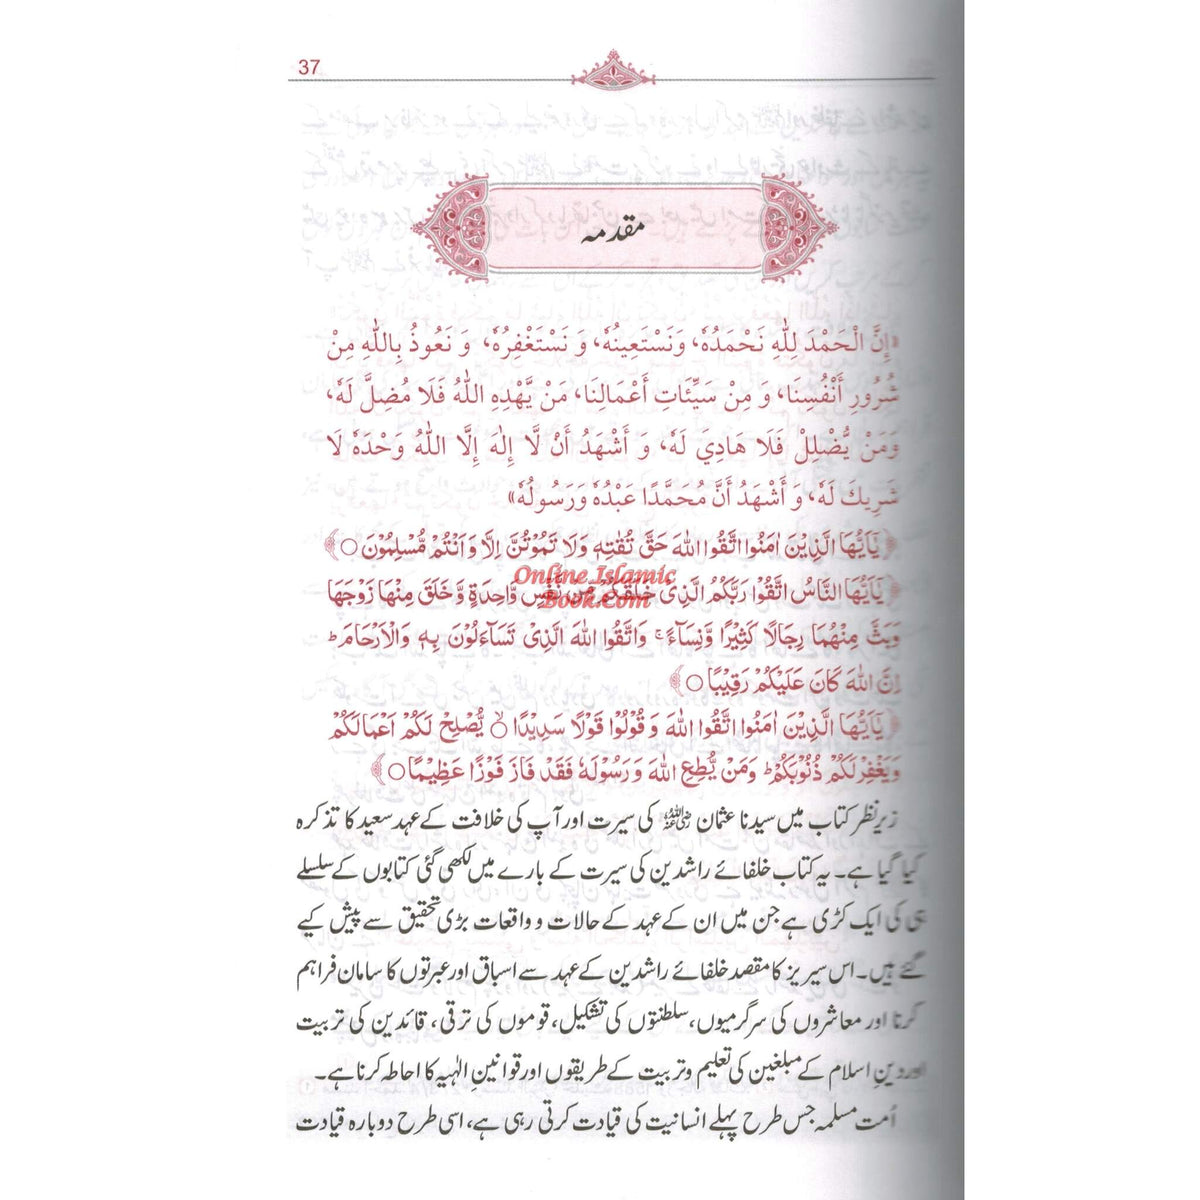 37
مقدمہ
«إِنَّ الْحَمْدَ لِلّٰهِ نَحْمَدُهٗ، وَنَسْتَعِينُهٗ، وَ نَسْتَغْفِرُهٗ، وَ نَعُوذُ بِاللّٰهِ مِنْ
شُرُورِ أَنْفُسِنَا، وَ مِنْ سَيِّئَاتِ أَعْمَالِنَا، مَنْ يَّهْدِهِ اللّٰهُ فَلَا مُضِلَّ لَهٗ،
وَمَنْ يُّضْلِلْ فَلَا هَادِيَ لَهٗ، وَ أَشْهَدُ أَنْ لَّا إِلٰهَ إِلَّا اللّٰهُ وَحْدَهٗ لَا
شَرِيكَ لَهٗ، وَ أَشْهَدُ أَنَّ مُحَمَّدًا عَبْدُهٗ وَرَسُولُهٗ»
﴿ يٰٓاَيُّهَا الَّذِيْنَ اٰمَنُوا اتَّقُوا اللّٰهَ حَقَّ تُقٰتِهٖ وَلَا تَمُوْتُنَّ اِلَّا وَاَنْتُمْ مُّسْلِمُوْنَ ○ ﴾
Online Islamic
Book.Com
﴿ يٰٓاَيُّهَا النَّاسُ اتَّقُوْا رَبَّكُمُ الَّذِيْ خَلَقَكُمْ مِّنْ نَّفْسٍ وَّاحِدَةٍ وَّخَلَقَ مِنْهَا زَوْجَهَا
وَبَثَّ مِنْهُمَا رِجَالًا كَثِيْرًا وَّنِسَآءً ۚ وَاتَّقُوا اللّٰهَ الَّذِيْ تَسَآءَلُوْنَ بِهٖ وَالْاَرْحَامَ ؕ
اِنَّ اللّٰهَ كَانَ عَلَيْكُمْ رَقِيْبًا ○ ﴾
﴿ يٰٓاَيُّهَا الَّذِيْنَ اٰمَنُوا اتَّقُوا اللّٰهَ وَقُوْلُوْا قَوْلًا سَدِيْدًا ○ۙ يُّصْلِحْ لَكُمْ اَعْمَالَكُمْ
وَيَغْفِرْ لَكُمْ ذُنُوْبَكُمْ ؕ وَمَنْ يُّطِعِ اللّٰهَ وَرَسُوْلَهٗ فَقَدْ فَازَ فَوْزًا عَظِيْمًا ○ ﴾
زیر نظر کتاب میں سیدنا عثمان رضی اللہ عنہ کی سیرت اور آپ کی خلافت کے عہد سعید کا تذکرہ
کیا گیا ہے۔ یہ کتاب خلفائے راشدین کی سیرت کے بارے میں لکھی گئی کتابوں کے سلسلے
ہی کی ایک کڑی ہے جن میں ان کے عہد کے حالات و واقعات بڑی تحقیق سے پیش کیے
گئے ہیں۔ اس سیریز کا مقصد خلفائے راشدین کے عہد سے اسباق اور عبرتوں کا سامان فراہم
کرنا اور معاشروں کی سرگرمیوں، سلطنتوں کی تشکیل، قوموں کی ترقی، قائدین کی تربیت
اور دینِ اسلام کے مبلغین کی تعلیم و تربیت کے طریقوں اور قوانینِ الٰہیہ کا احاطہ کرنا ہے۔
اُمت مسلمہ جس طرح پہلے انسانیت کی قیادت کرتی رہی ہے، اسی طرح دوبارہ قیادت